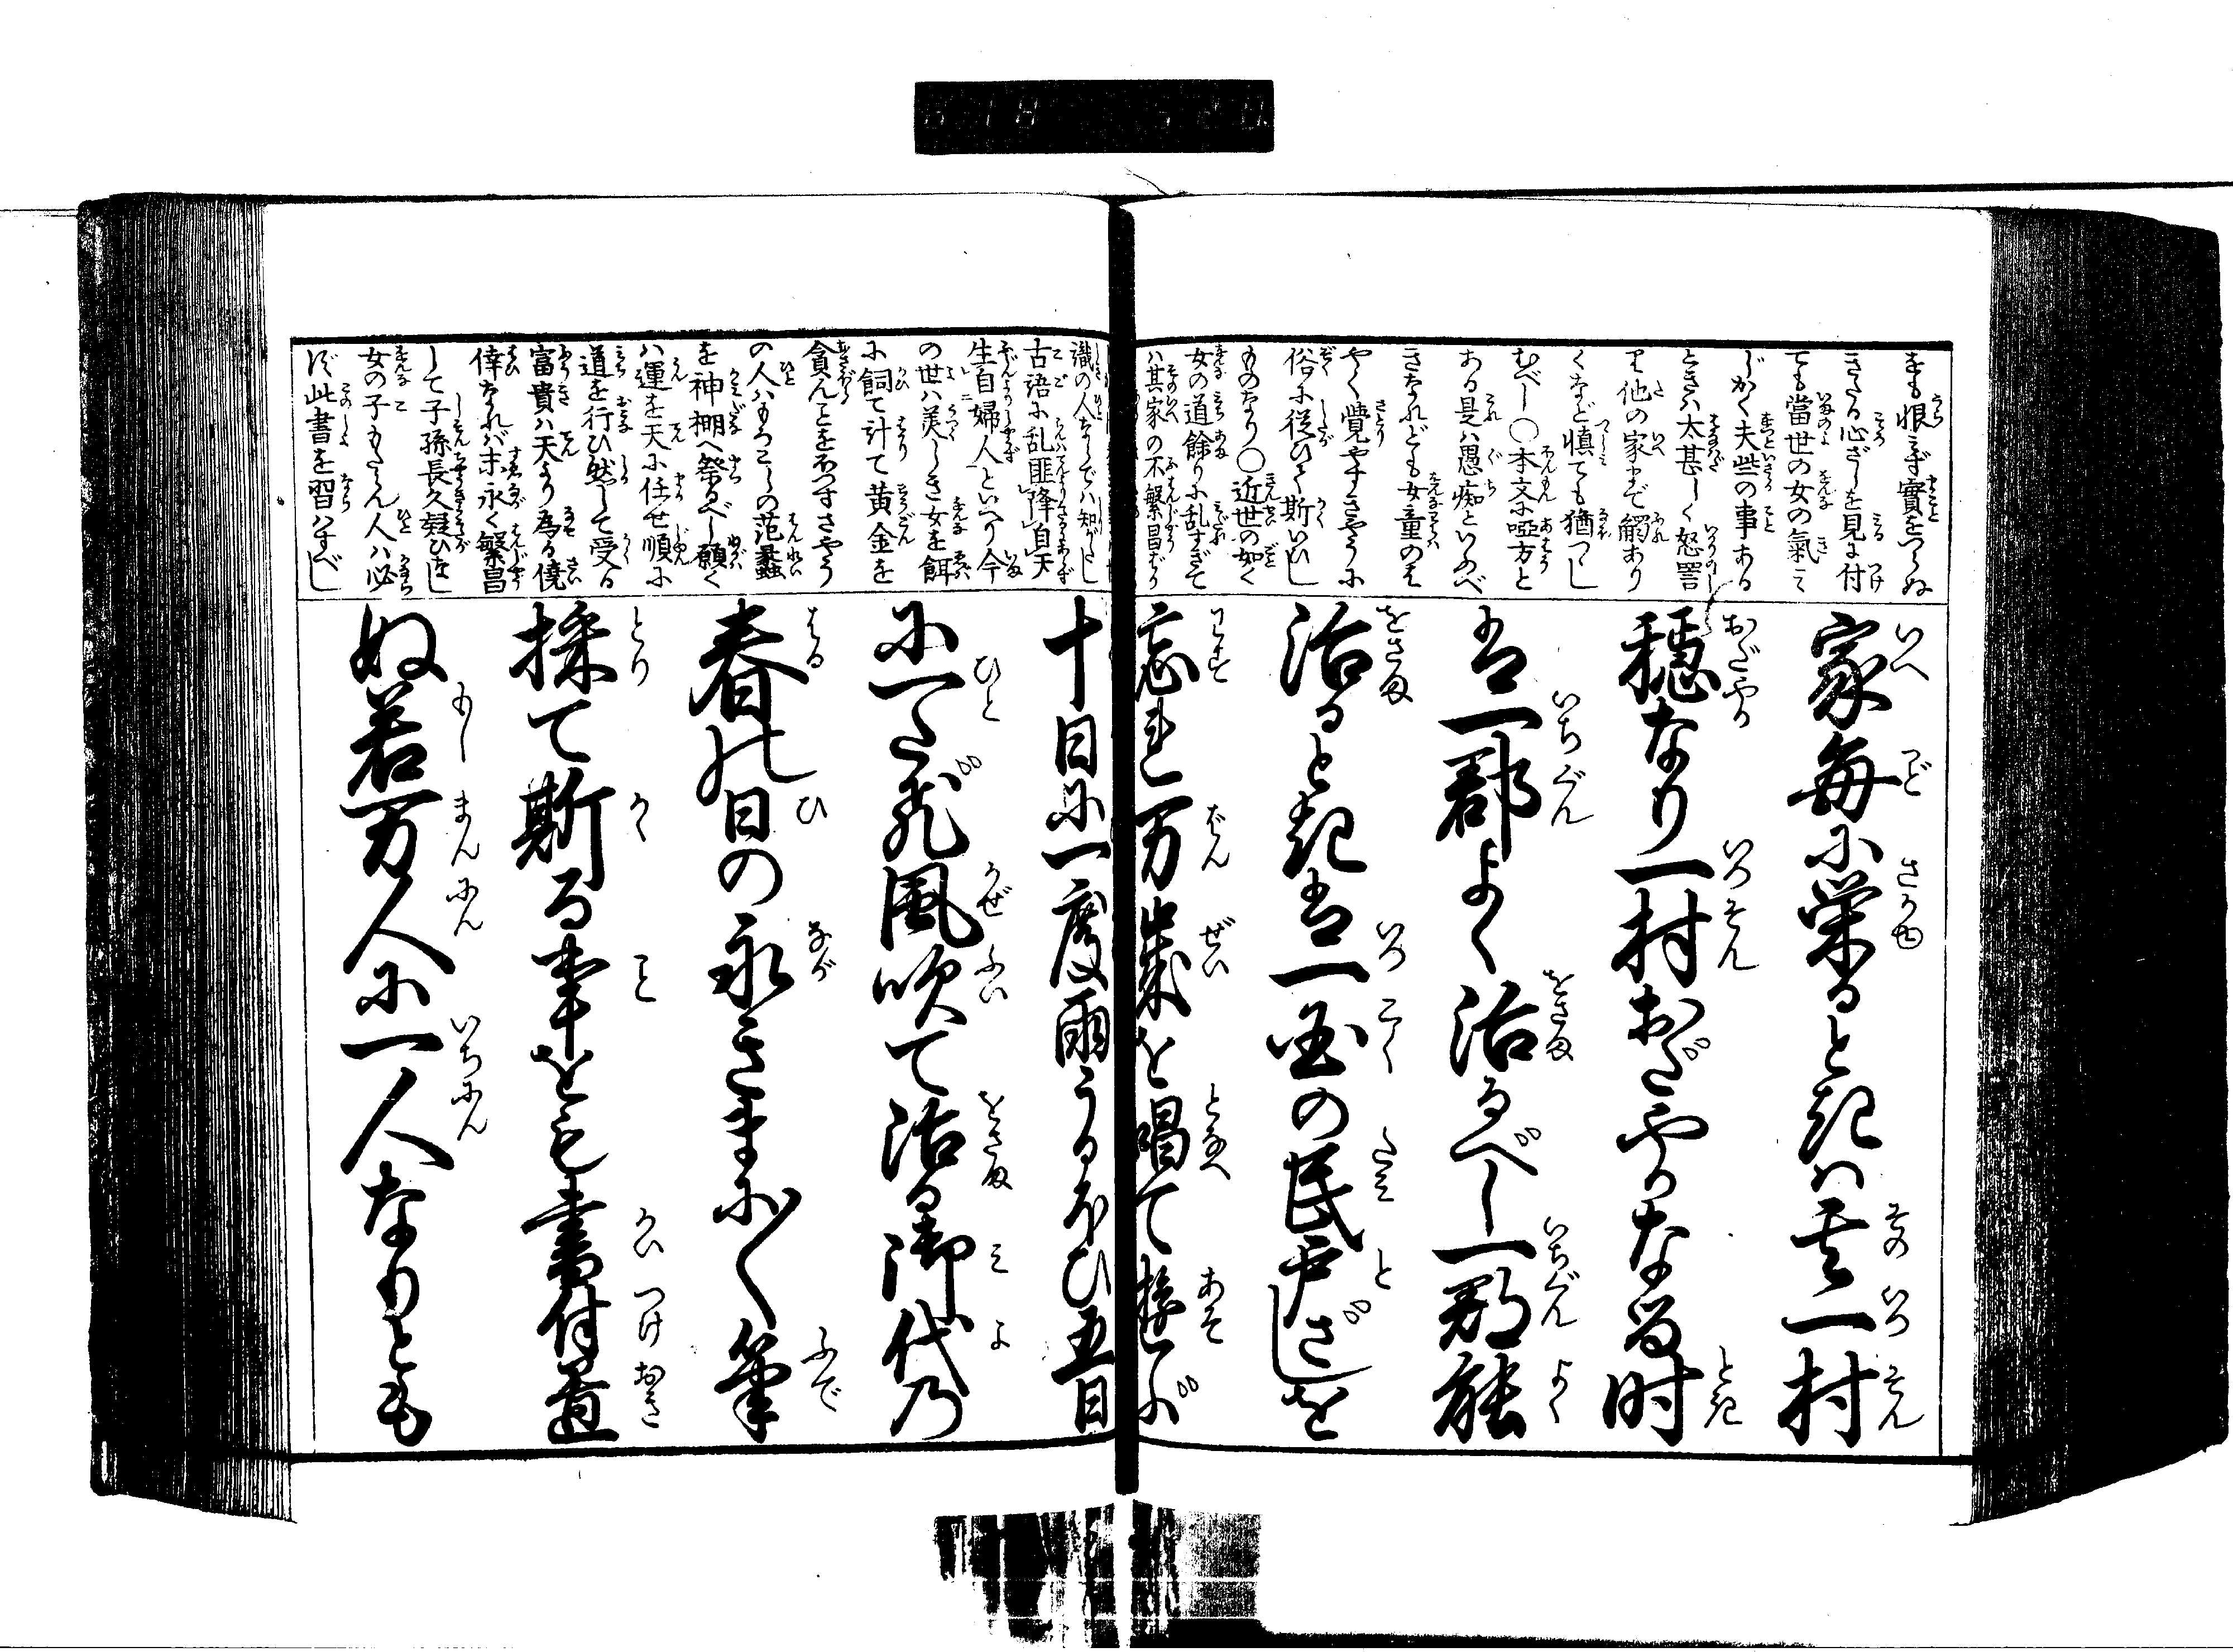 をも恨みず實をつくしぬ
きたる心ざしを見に付
ても當世の女の氣にて
じかく夫些の事ある
ときハ太甚しく怒詈
り他の家まで觸あり
くなど慎ても猶つゝし
むべし〇本文に啞方と
ある是ハ愚痴といふべ
きなれども女童のは
やく覺やすきやうに
俗に従ひて斯いひし
ものなり〇近世の如く
女の道餘りに乱すぎて
ハ其家の不繁昌ばかり
識の人ならでハ知がたし
古語に乱匪降自天
生自婦人といへり今
の世ハ美しき女を餌
に飼て計て黄金を
貪んことをおつすさやう
の人ハもろこしの范蠡
を神棚へ祭るべし願く
ハ運を天に任せ順に
道を行ひ然して受る
富貴ハ天より為る僥
倖なれバ末永く繁昌
して子孫長久疑ひなし
女の子もたらん人ハ必
ず此書を習ハすべし
家毎に栄ると起ハ其一村
穏なり一村おだやかなる时
者一郡よく治るべし一郡能
治ると起者一國の民戸ざしを
忘れ万歳を唱て遊ぶ
十日に一度雨うるほひ五日
に一たび風吹て治る御代乃
春の日の永きまに〱筆
採て斯る事をも書付置
ぬ若万人に一人なりとも